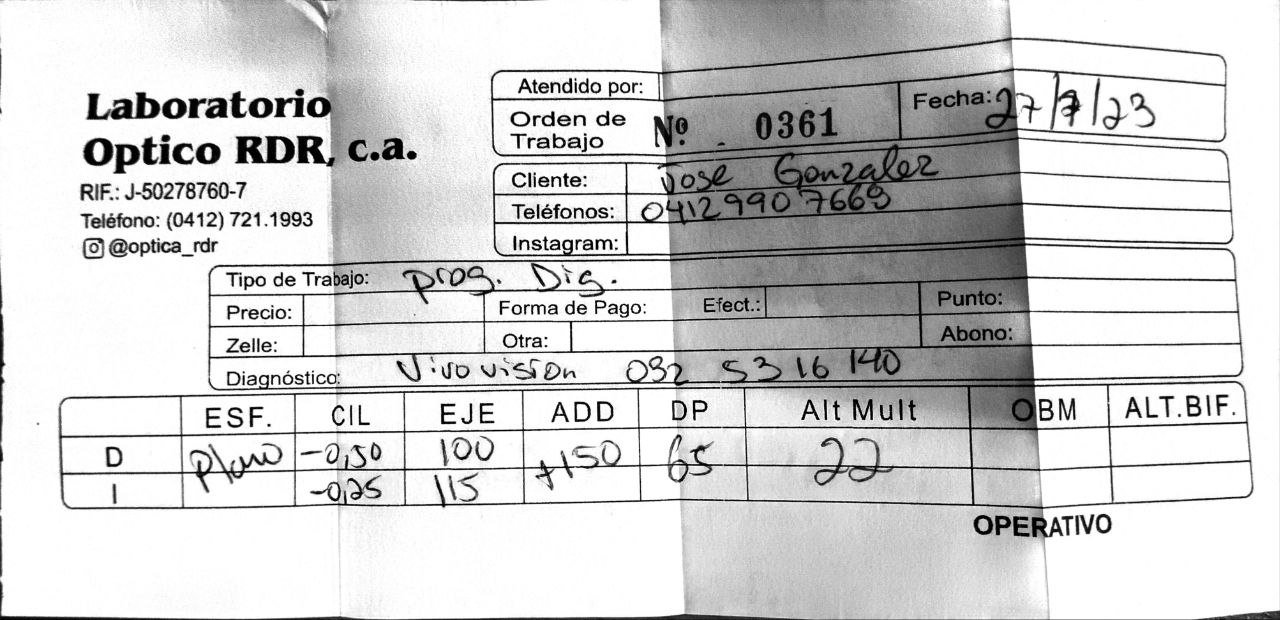 Laboratorio
Optico RDR, c.a.
RIF.: J-50278760-7
Teléfono: (0412) 721.1993
@optica_rdr
Atendido por:
Orden de Trabajo Nº. 0361 Fecha: 27/7/23
Cliente: Jose Gonzalez
Teléfonos: 04129907669
Instagram:
Tipo de Trabajo: prog. Dig.
Precio: Forma de Pago: Efect.: Punto:
Zelle: Otra: Abono:
Diagnóstico: Vivo vision 032 53 16 140
ESF. CIL EJE ADD DP Alt Mult OBM ALT.BIF.
D Plano -0,50 100 +150 65 22
I -0,25 115
OPERATIVO